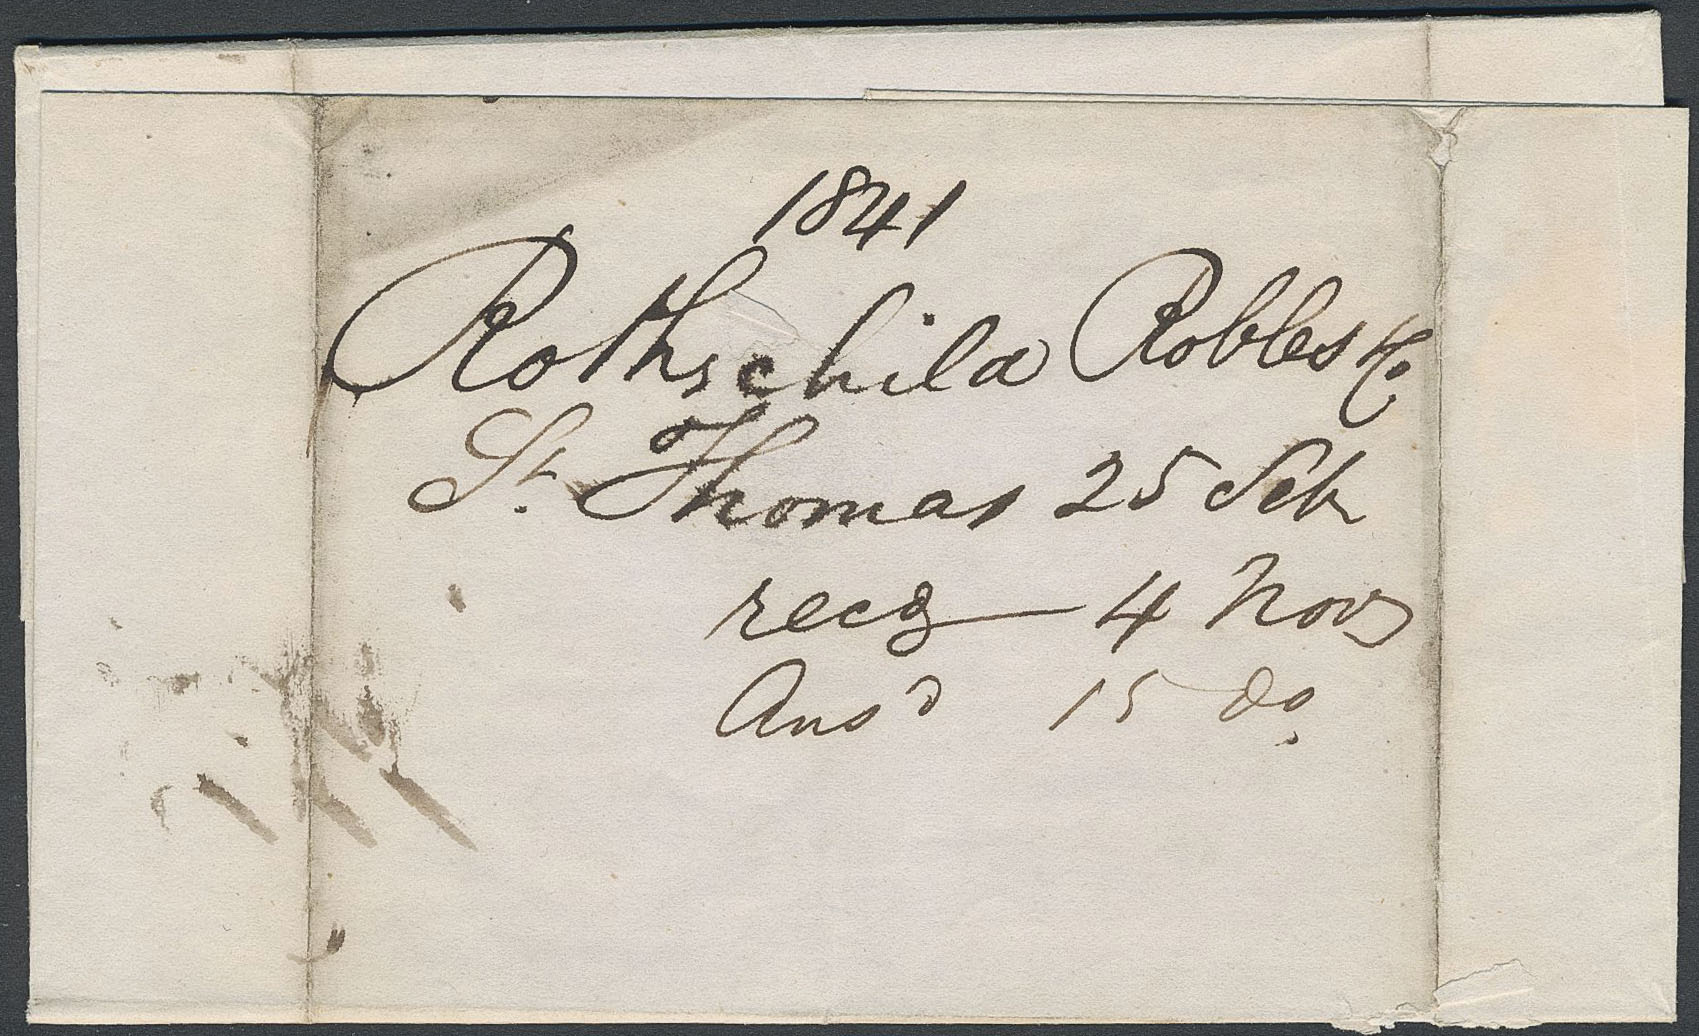 1841
Rothschild Robles & Co
St. Thomas 25 Feb
recd 4 Nov
Ansd 15 do.